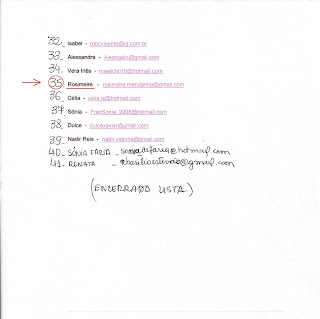 32_ Isabel - robovicente@ig.com.br
33_ Alessandra - Aleangelo@gmail.com
34_ Vera Inês - maelicht16@hotmail.com
35_ Rosimeire - rosimeire.mendanha@gmail.com
36_ Célia - ceka.js@hotmail.com
37_ Sônia - FranSonia_2008@hotmail.com
38_ Dulce - dulcexavier@gmail.com
39_ Nadir Reis - nadir.vidinha@gmail.com
40_ SÔNIA FARIA - soniadifaria@hotmail.com
41_ RENATA - rbasilioestevao@gmail.com
(ENCERRADO LISTA)